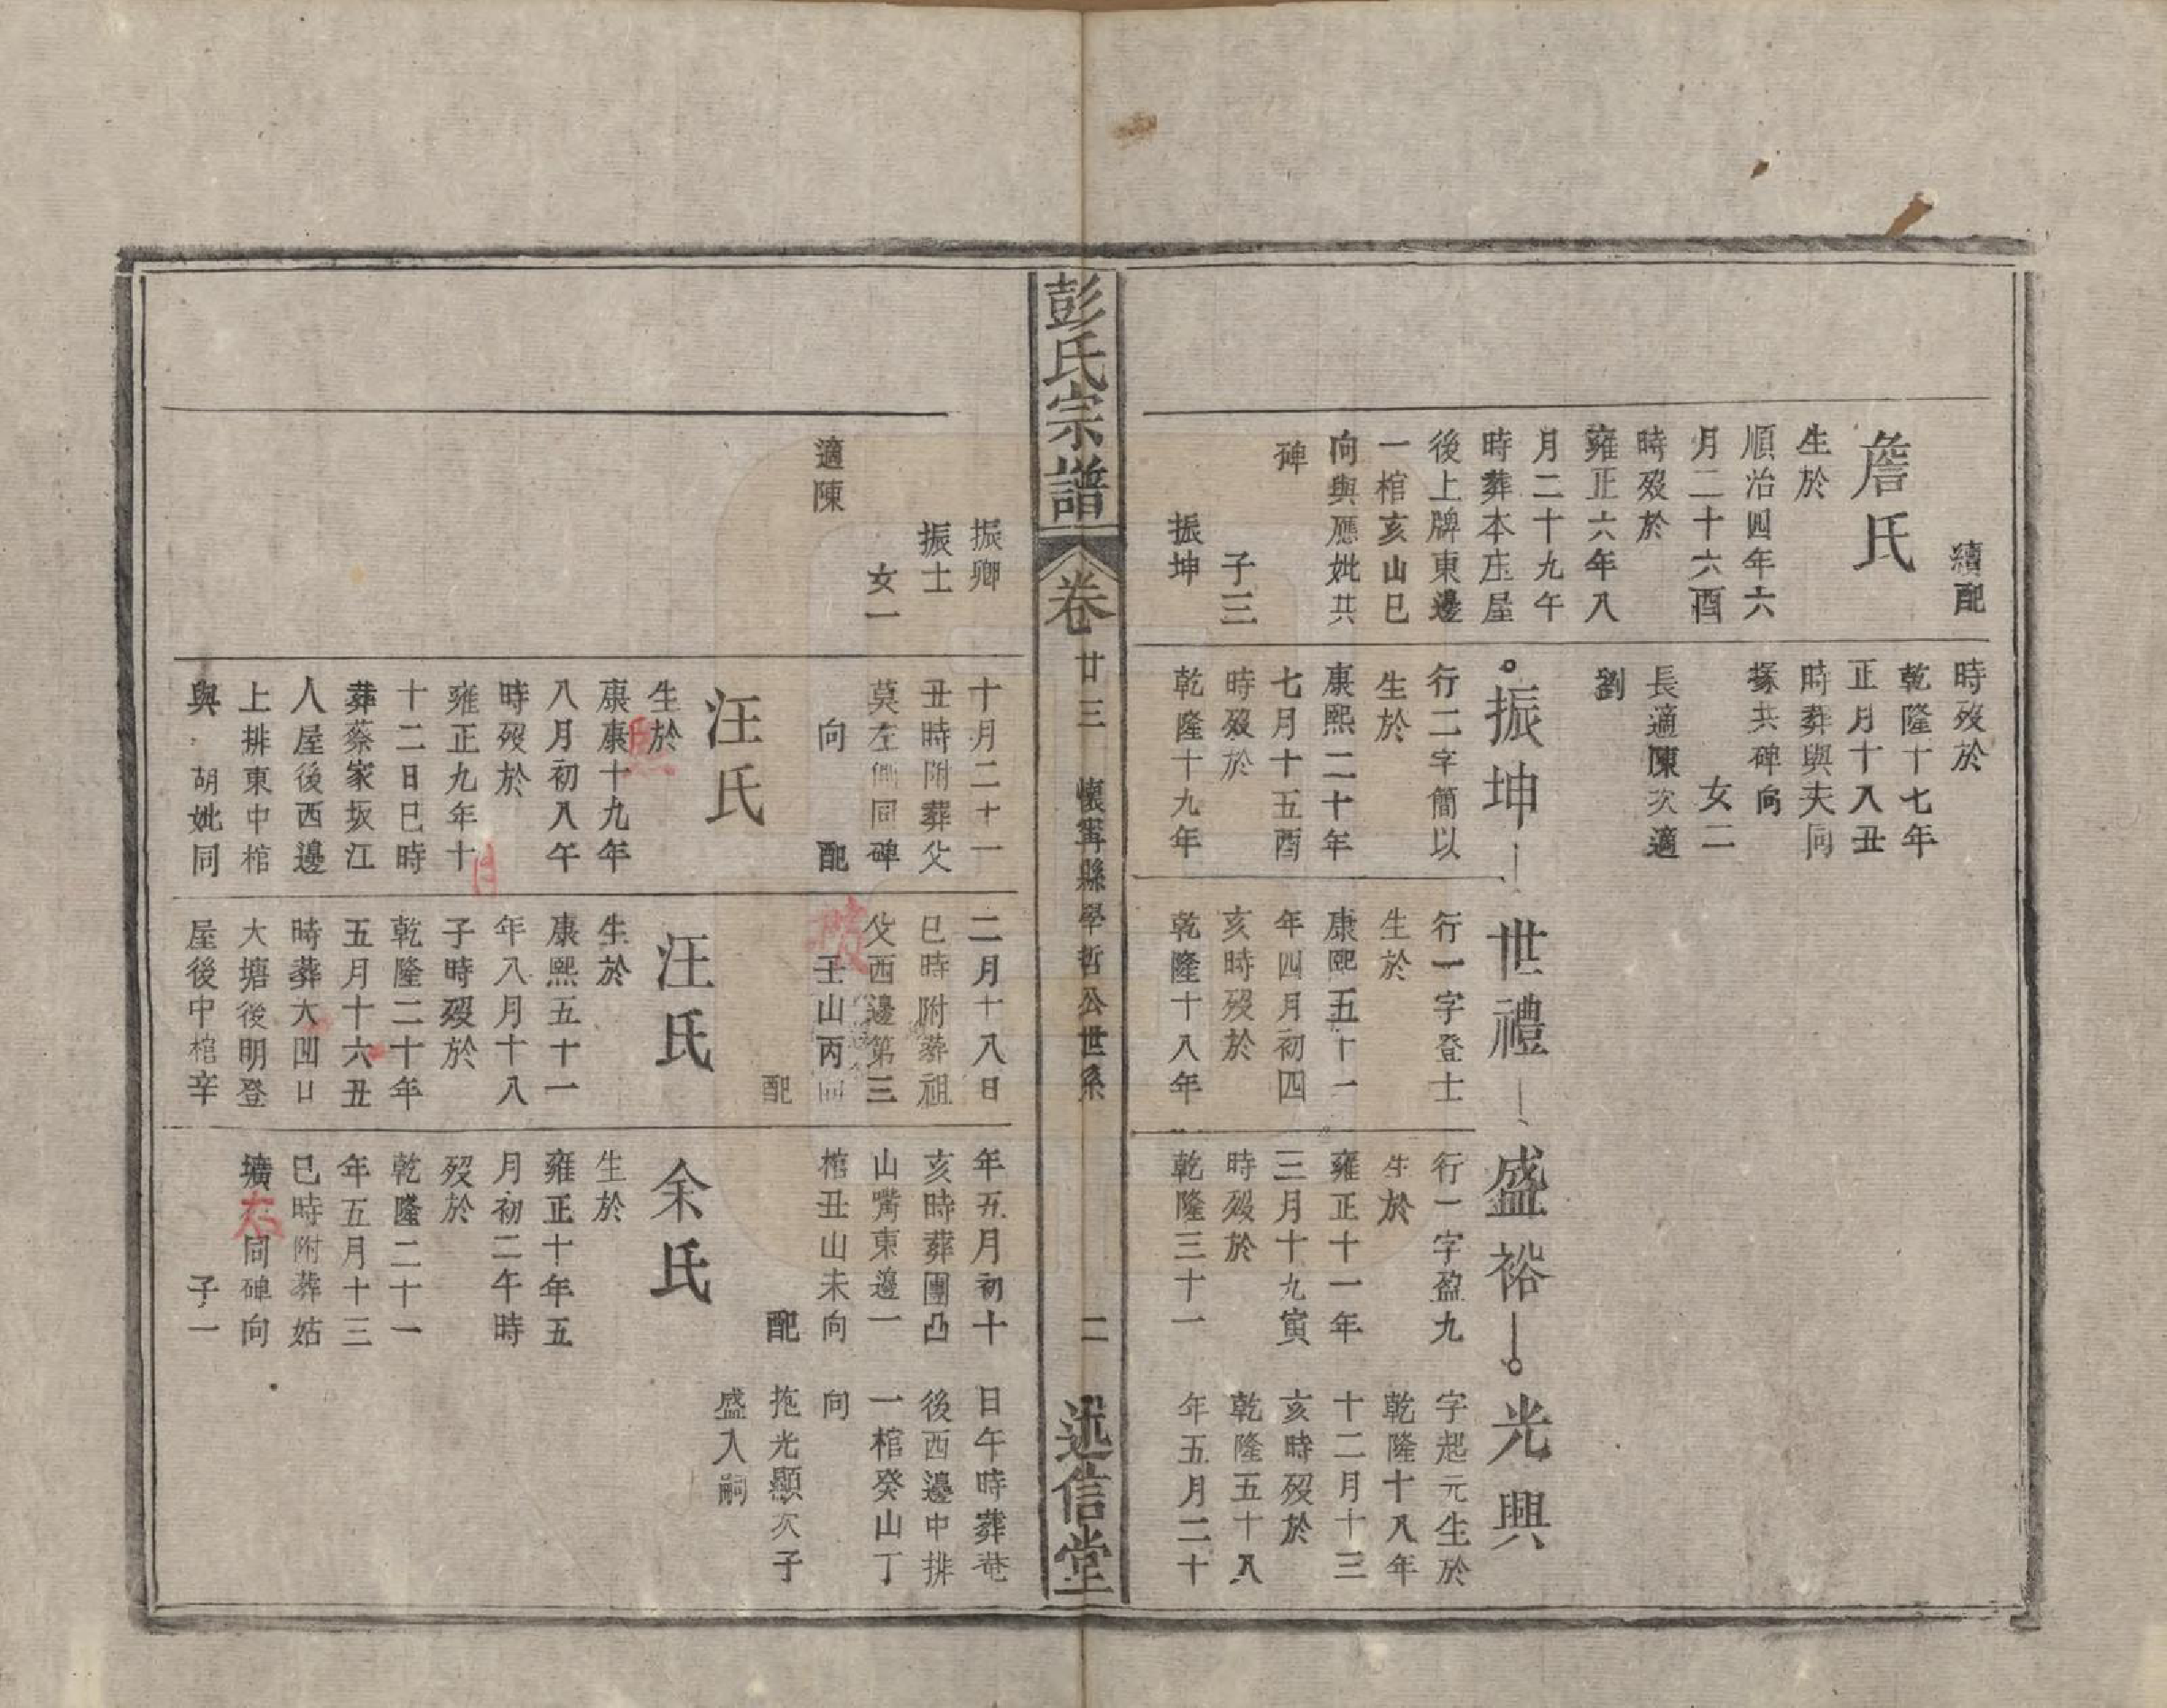 續配
詹氏
生於
順治四年六
月二十六酉
時歿於
雍正六年八
月二十九午
時葬本庄屋
後上牌東邊
一棺亥山巳
向與應妣共
碑
子三
振坤
時歿於
乾隆十七年
正月十八丑
時葬與夫同
塚共碑向
女二
長適陳次適
劉
振坤
行二字簡以
生於
康熙二十年
七月十五酉
時歿於
乾隆十九年
世禮
行一字登士
生於
康熙五十一
年四月初四
亥時歿於
乾隆十八年
盛裕
行一字盈九
生於
雍正十一年
三月十九寅
時歿於
乾隆三十一
光興
字起元生於
乾隆十八年
十二月十三
亥時歿於
乾隆五十八
年五月二十
彭氏宗譜
卷廿三
懷甯縣學哲公世系
二
述信堂
振卿
振士
女一
適陳
十月二十一
丑時附葬父
墓左側同碑
向 配
汪氏
生於
康康十九年
熙
八月初八午
時歿於
雍正九年十
月
十二日巳時
葬蔡家坂江
人屋後西邊
上排東中棺
與 胡妣同
二月十八日
巳時附葬祖
父西邊第三
壬山丙向
配
汪氏
生於
康熙五十一
年八月十八
子時歿於
乾隆二十年
五月十六丑
時葬大凹口
大塘後明登
屋後中棺辛
年五月初十
亥時葬團凸
山嘴東邊一
棺丑山未向
配
余氏
生於
雍正十年五
月初二午時
歿於
乾隆二十一
年五月十三
巳時附葬姑
壙右同碑向
子一
日午時葬菴
後西邊中排
一棺癸山丁
向
拖光顯次子
盛入嗣